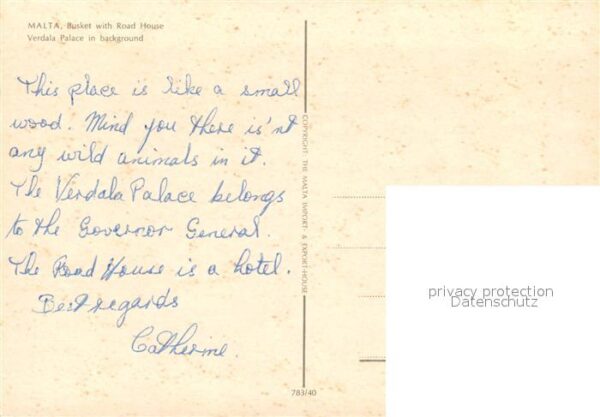 MALTA, Busket with Road House
Verdala Palace in background
This place is like a small
wood. Mind you there is'nt
any wild animals in it.
The Verdala Palace belongs
to the Governor General.
The Road House is a hotel.
Best regards
Catherine.
COPYRIGHT THE MALTA IMPORT- & EXPORT-HOUSE
783/40
privacy protection
Datenschutz